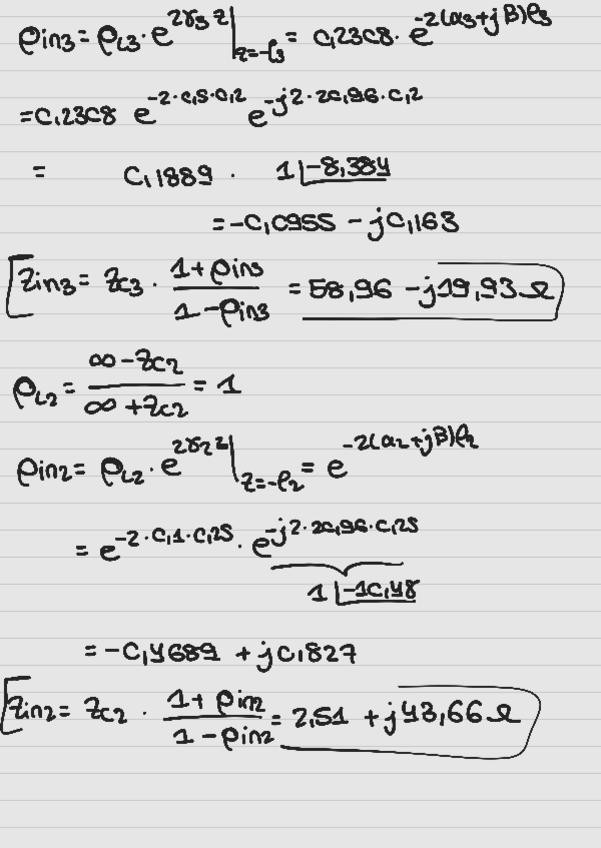 ρin3 = ρL3 · e^{2γ3 z} |_{z=-ℓ3} = 0,2308 · e^{-2(α3+jβ)ℓ3}
= 0,2308 e^{-2·0,5·0,2} e^{-j2·20,96·0,2}
= 0,1889 · 1∠-8,384
= -0,0955 - j0,163
Zin3 = Zc3 · (1+ρin3)/(1-ρin3) = 58,96 - j19,93 Ω
ρL2 = (∞-Zc2)/(∞+Zc2) = 1
ρin2 = ρL2 · e^{2γ2 z} |_{z=-ℓ2} = e^{-2(α2+jβ)ℓ2}
= e^{-2·0,1·0,25} · e^{-j2·20,96·0,25}
1∠-10,48
= -0,4689 + j0,827
Zin2 = Zc2 · (1+ρin2)/(1-ρin2) = 2,51 + j43,66 Ω